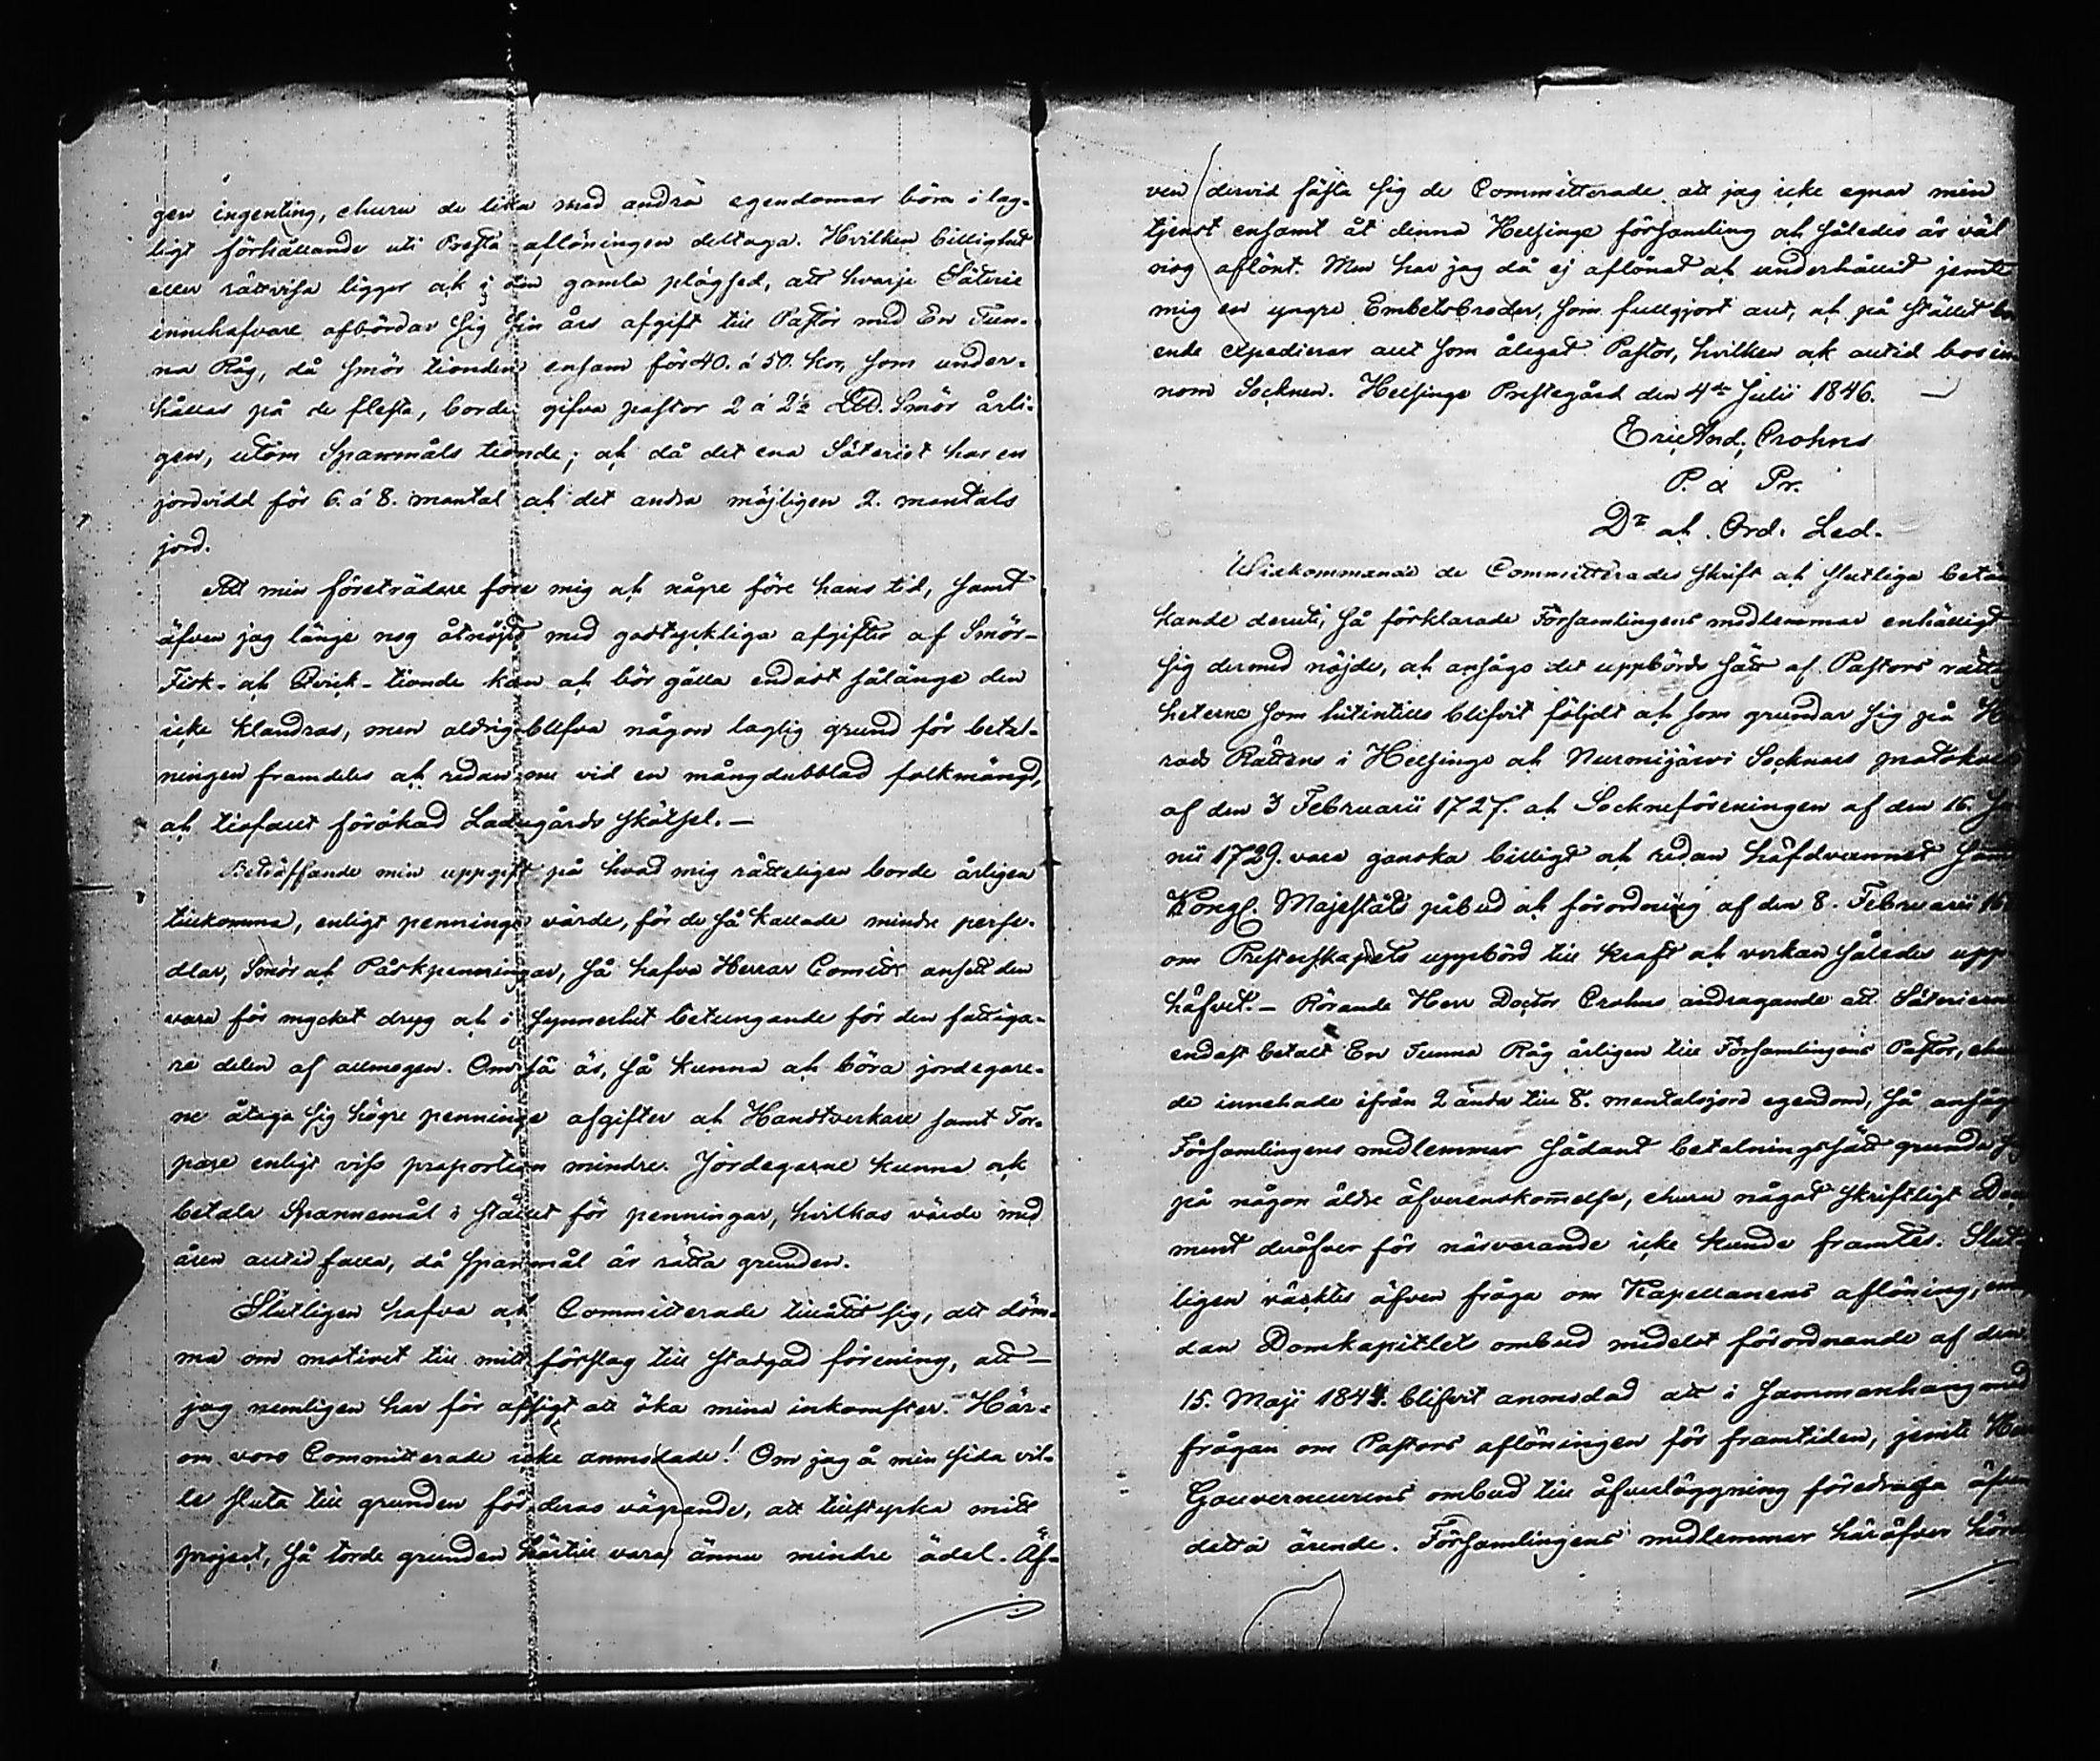 gen ingenting, ehuru de lika med andra egendomar böra i lag-
ligt förhållande uti Presta aflöningen deltaga. Hvilken billighet
eller rättvisa ligger ock i den gamla plägsed, att hvarje Säterie
innehafvare afbördar sig sin års afgift till Pastor med En Tun-
na Råg, då smör tionden ensam för 40. á 50. Kor, som under-
hållas på de flesta, borde gifva pastor 2 á 2½ LU. Smör årli-
gen, utom Spanmåls tionde; och då det ena Säteriet har en
jordvidd för 6. á 8. mantal och det andra möjligen 2. mantals
jord.
Att min företrädare före mig och någre före hans tid, samt
äfven jag länge nog åtnöjts med godtyckliga afgifter af Smör-
Fisk- och Qvick- tionde kan och bör gälla endast sålänge den
icke klandras, men aldrig blifva någon laglig grund för betal-
ningen framdeles och redan nu vid en mångdubblad folkmängd,
och tiofallt förökad Ladugårds skötsel. —
Beträffande min uppgift på hvad mig rätteligen borde årligen
tillkomma, enligt penninge värde, för de så kallade mindre perse-
dlar, Smör och Påskpenningar, så hafva Herrar Comitte ansett den
vara för mycket dryg och i synnerhet betungande för den fattiga-
re delen af allmogen. Om så är, så kunna och böra jordegare-
ne åtaga sig högre penninge afgifter och Handtverkare samt Tor-
pare enligt viss proportion mindre. Jordegarne kunna ock
betala Spannemål i stället för penningar, hvilkas värde med
åren alltid falla, då spanmål är rätta grunden.
Slutligen hafva och Committerade tillåtit sig, att döm-
ma om motivet till mitt förslag till stadgad förening, att —
jag nemligen har för afsigt att öka mina inkomster. Här-
om voro Committerade icke anmodade! Om jag å min sida vil-
le sluta till grunden för deras vägrande, att tillstyrka mitt
project, så torde grunden härtill vara ännu mindre ädel. Äf-
ven dervid fästa sig de Committerade att jag icke egnar min
tjenst ensamt åt denna Helsinge församling och således är väl
nog aflönt. Men har jag då ej aflönat och underhållit jemte
mig en yngre Embetsbroder, som fullgjort allt, och på stället bo-
ende expedierar allt som åligat Pastor, hvilken ock alltid bor in-
nom Socknen. Helsinge Prestegård den 4de Julii 1846. —
Eric And. Crohns
P. à Pr.
Dr och Ord. Led.
Widkommande de Committerades skrift och slutliga betän-
kande deruti, så förklarade Församlingens medlemmar enhälligt
sig dermed nöjde, och ansågo det uppbörds sätt af Pastors rättig
heterne som hitintills blifvit följdt och som grundar sig på Hä
rads Rättens i Helsinge och Nurmijärvi Socknars protokoll
af den 3 Februarii 1727. och Sockneföreningen af den 16. Ju
nii 1729. vara ganska billigt och redan häfdvunnet samt
Kongl. Majestäts påbud och förordning af den 8. Februarii 16
om Presterskapets uppbörd till kraft och verkan således upp
häfvet. — Rörande Herr Doctor Crohns andragande att Säterierne
endast betalt En Tunna Råg årligen till Församlingens Pastor, ehuru
de innehade ifrån 2 ända till 8. mantalsjord egendom, så ansågo
Församlingens medlemmar sådant betalningssätt grunda sig
på någon äldre öfverenskommelse, ehuru något skriftligt Docu
ment deröfver för närvarande icke kunde framtes. Slut-
ligen väcktes äfven fråga om Kapellanens aflöning, em
dan Domkapitlets ombud medelst förordnande af den
15. Maji 1844. blifvit anmodad att i sammanhang med
frågan om Pastors aflöningen för framtiden, jemte Herr
Gouverneurens ombud till öfverläggning föredraga äfven
detta ärende. Församlingens medlemmar häröfver hörde